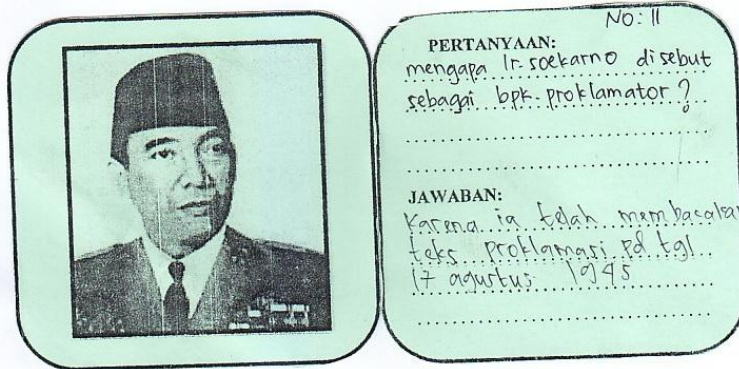 NO: 11
PERTANYAAN:
mengapa Ir. soekarno disebut
sebagai bpk. proklamator ?
JAWABAN:
Karena ia telah membacakan
teks proklamasi pd tgl
17 agustus 1945